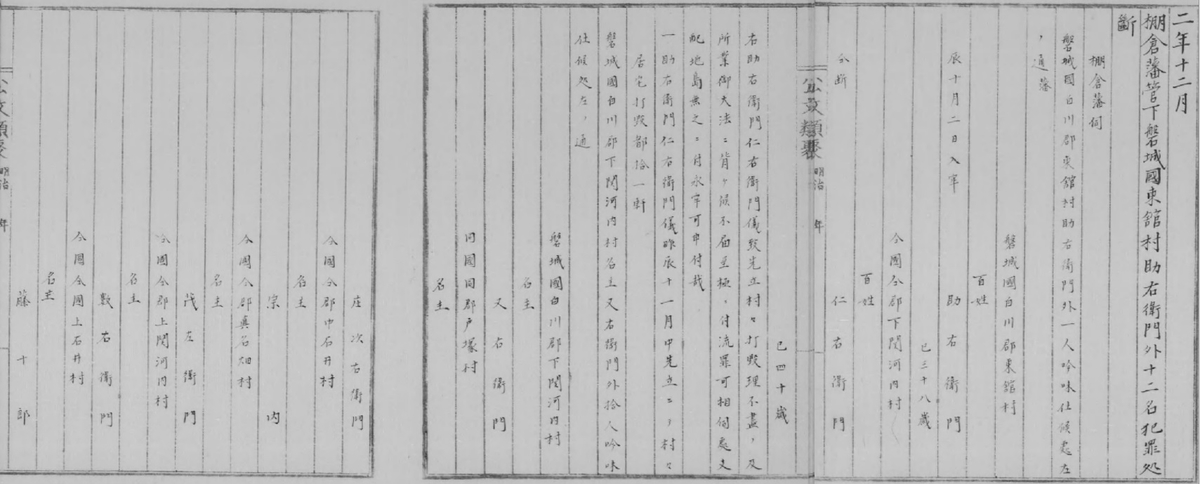 二年十二月
棚倉藩管下磐城國東舘村助右衛門外十二名犯罪処
断
棚倉藩伺
磐城國白川郡東舘村助右衛門外一人吟味仕候処左
ノ通
磐城國白川郡東舘村
百姓
助右衛門
辰十月二日入牢
巳三十八歳
仝國仝郡下関河内村
百姓
仁右衛門
仝断
巳四十歳
公文類聚 明治 年
右助右衛門仁右衛門儀発先立村々打毀理不盡ノ及
所業御大法ニ背ケ候不届至極ニ付流罪可相伺處支
配地島無之ニ付永牢可申付哉
一助右衛門仁右衛門儀昨辰十一月中先立ニテ村々
居宅打毀都拾一軒
磐城國白川郡下関河内村名主又右衛門外拾人吟味
仕候処左ノ通
磐城國白川郡下関河内村
名主
又右衛門
同國同郡戸塚村
名主
庄次右衛門
仝國仝郡中石井村
名主
宗内
仝國仝郡眞名畑村
名主
茂左衛門
仝國仝郡上関河内村
名主
数右衛門
仝國仝國上石井村
名主
藤十郎
公文類聚 明治 年